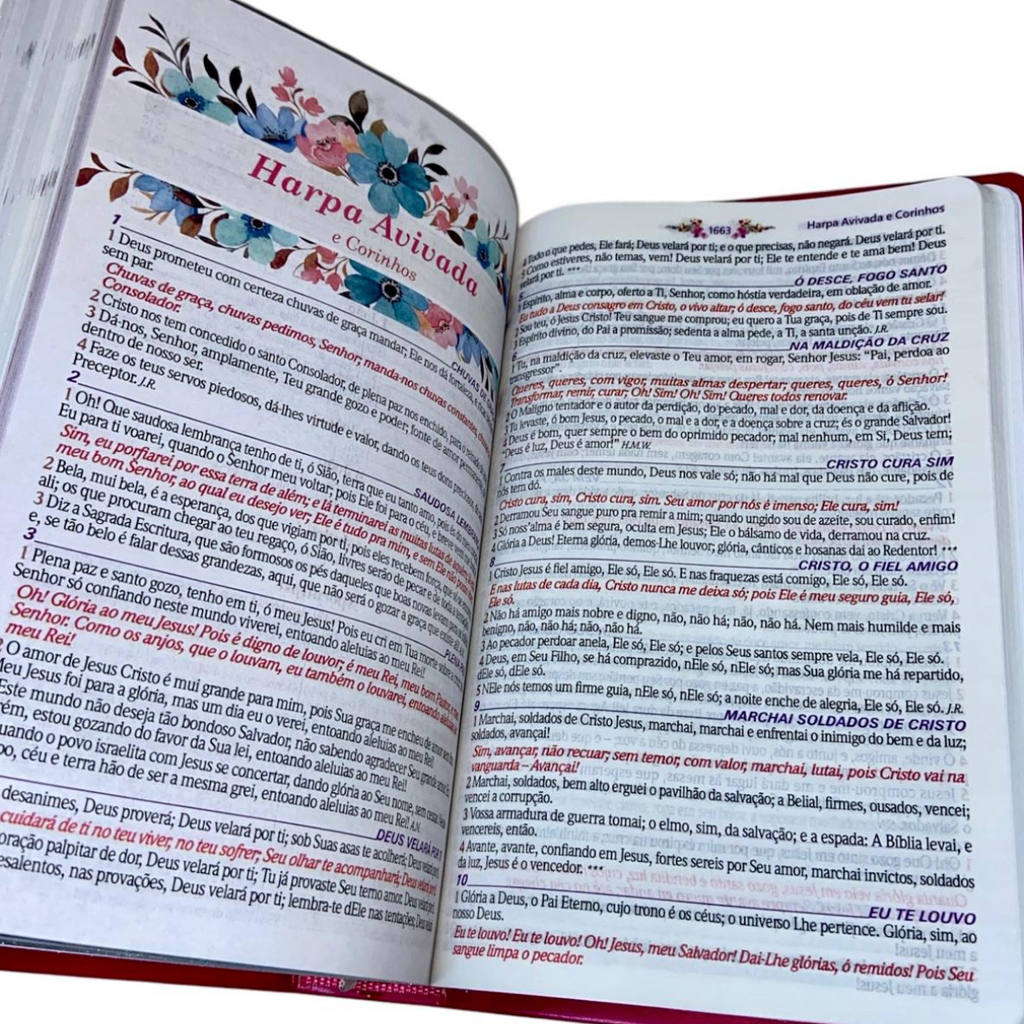 Harpa Avivada
e Corinhos
1
CHUVAS DE
1 Deus prometeu com certeza chuvas de graça mandar; Ele nos dá fortaleza, e
sem par.
Chuvas de graça, chuvas pedimos, Senhor; manda-nos chuvas constantes,
Consolador.
2 Cristo nos tem concedido o santo Consolador, de plena paz nos enchido, para o
3 Dá-nos, Senhor, amplamente, Teu grande gozo e poder; fonte de amor permanente,
dentro de nosso ser.
4 Faze os teus servos piedosos, dá-lhes virtude e valor, dando os teus dons preciosos,
receptor. J.R.
2
SAUDOSA LEMBR
1 Oh! Que saudosa lembrança tenho de ti, ó Sião, terra que eu tanto amo, pois és do
Eu para ti voarei, quando o Senhor meu voltar; pois Ele foi para o céu, e breve vem
Sim, eu porfiarei por essa terra de além; e lá terminarei as muitas lutas de aquém;
meu bom Senhor, ao qual eu desejo ver; Ele é tudo pra mim, e sem Ele não
2 Bela, mui bela, é a esperança, dos que vigiam por ti, pois eles recebem força, que
ali; os que procuram chegar ao teu regaço, ó Sião, livres serão de pecar e de toda
3 Diz a Sagrada Escritura, que são formosos os pés daqueles que boas novas levam para
e, se tão belo é falar dessas grandezas, aqui, que não será o gozar a graça que existe ali
3
PLENA
1 Plena paz e santo gozo, tenho em ti, ó meu Jesus! Pois eu cri em Tua morte sobre a
Senhor só confiando neste mundo viverei, entoando aleluias ao meu Rei!
Oh! Glória ao meu Jesus! Pois é digno de louvor; é meu Rei, meu bom Pastor, e meu
Senhor. Como os anjos, que o louvam, eu também o louvarei, entoando aleluias ao
meu Rei!
2 O amor de Jesus Cristo é mui grande para mim, pois Sua graça me encheu de amor sem
Meu Jesus foi para a glória, mas um dia eu o verei, entoando aleluias ao meu Rei!
Este mundo não deseja tão bondoso Salvador, não sabendo agradecer Seu grande amor.
ém, estou gozando do favor da Sua lei, entoando aleluias ao meu Rei!
uando o povo israelita com Jesus se concertar, dando glória ao Seu nome, sem cessar,
po, céu e terra hão de ser a mesma grei, entoando aleluias ao meu Rei! A.N.
DEUS VELARÁ POR T
desanimes, Deus proverá; Deus velará por ti; sob Suas asas te acolherá; Deus velará por
cuidará de ti no teu viver, no teu sofrer; Seu olhar te acompanhará; Deus velará
oração palpitar de dor, Deus velará por ti; Tu já provaste Seu terno amor. Deus velará por
esalentos, nas provações, Deus velará por ti; lembra-te dEle nas tentações; Deus
1663
Harpa Avivada e Corinhos
4 Tudo o que pedes, Ele fará; Deus velará por ti; e o que precisas, não negará. Deus velará por ti.
5 Como estiveres, não temas, vem! Deus velará por ti; Ele te entende e te ama bem! Deus
velará por ti. ***
Ó DESCE, FOGO SANTO
1 Espírito, alma e corpo, oferto a Ti, Senhor, como hóstia verdadeira, em oblação de amor.
Eu tudo a Deus consagro em Cristo, o vivo altar; ó desce, fogo santo, do céu vem tu selar!
2 Sou teu, ó Jesus Cristo! Teu sangue me comprou; eu quero a Tua graça, pois de Ti sempre sou.
3 Espírito divino, do Pai a promissão; sedenta a alma pede, a Ti, a santa unção. J.R.
6
NA MALDIÇÃO DA CRUZ
1 Tu, na maldição da cruz, elevaste o Teu amor, em rogar, Senhor Jesus: "Pai, perdoa ao
transgressor".
Queres, queres, com vigor, muitas almas despertar; queres, queres, ó Senhor!
Transformar, remir, curar; Oh! Sim! Oh! Sim! Queres todos renovar.
2 O Maligno tentador e o autor da perdição, do pecado, mal e dor, da doença e da aflição.
3 Tu levaste, ó bom Jesus, o pecado, o mal e a dor, e a doença sobre a cruz; és o grande Salvador!
4 Deus é bom, quer sempre o bem do oprimido pecador; mal nenhum, em Si, Deus tem;
"Deus é luz, Deus é amor!" H.M.W.
7
CRISTO CURA SIM
1 Contra os males deste mundo, Deus nos vale só; não há mal que Deus não cure, pois de
nós tem dó.
Cristo cura, sim, Cristo cura, sim. Seu amor por nós é imenso; Ele cura, sim!
2 Derramou Seu sangue puro pra remir a mim; quando ungido sou de azeite, sou curado, enfim!
3 Só noss'alma é bem segura, oculta em Jesus; Ele o bálsamo de vida, derramou na cruz.
4 Glória a Deus! Eterna glória, demos-Lhe louvor; glória, cânticos e hosanas dai ao Redentor! ***
8
CRISTO, O FIEL AMIGO
1 Cristo Jesus é fiel amigo, Ele só, Ele só. E nas fraquezas está comigo, Ele só, Ele só.
E nas lutas de cada dia, Cristo nunca me deixa só; pois Ele é meu seguro guia, Ele só,
Ele só.
2 Não há amigo mais nobre e digno, não, não há; não, não há. Nem mais humilde e mais
benigno, não, não há; não, não há.
3 Ao pecador perdoar anela, Ele só, Ele só; e pelos Seus santos sempre vela, Ele só, Ele só.
4 Deus, em Seu Filho, se há comprazido, nEle só, nEle só; mas Sua glória me há repartido,
dEle só, dEle só.
5 NEle nós temos um firme guia, nEle só, nEle só; a noite enche de alegria, Ele só, Ele só. J.R.
9
MARCHAI SOLDADOS DE CRISTO
1 Marchai, soldados de Cristo Jesus, marchai, marchai e enfrentai o inimigo do bem e da luz;
soldados, avançai!
Sim, avançar, não recuar; sem temor, com valor; marchai, lutai, pois Cristo vai na
vanguarda – Avançai!
2 Marchai, soldados, bem alto erguei o pavilhão da salvação; a Belial, firmes, ousados, vencei;
vencei a corrupção.
3 Vossa armadura de guerra tomai; o elmo, sim, da salvação; e a espada: A Bíblia levai, e
vencereis, então.
4 Avante, avante, confiando em Jesus, fortes sereis por Seu amor, marchai invictos, soldados
da luz, Jesus é o vencedor. ***
10
EU TE LOUVO
1 Glória a Deus, o Pai Eterno, cujo trono é os céus; o universo Lhe pertence. Glória, sim, ao
nosso Deus.
Eu te louvo! Eu te louvo! Oh! Jesus, meu Salvador! Dai-Lhe glórias, ó remidos! Pois Seu
sangue limpa o pecador.